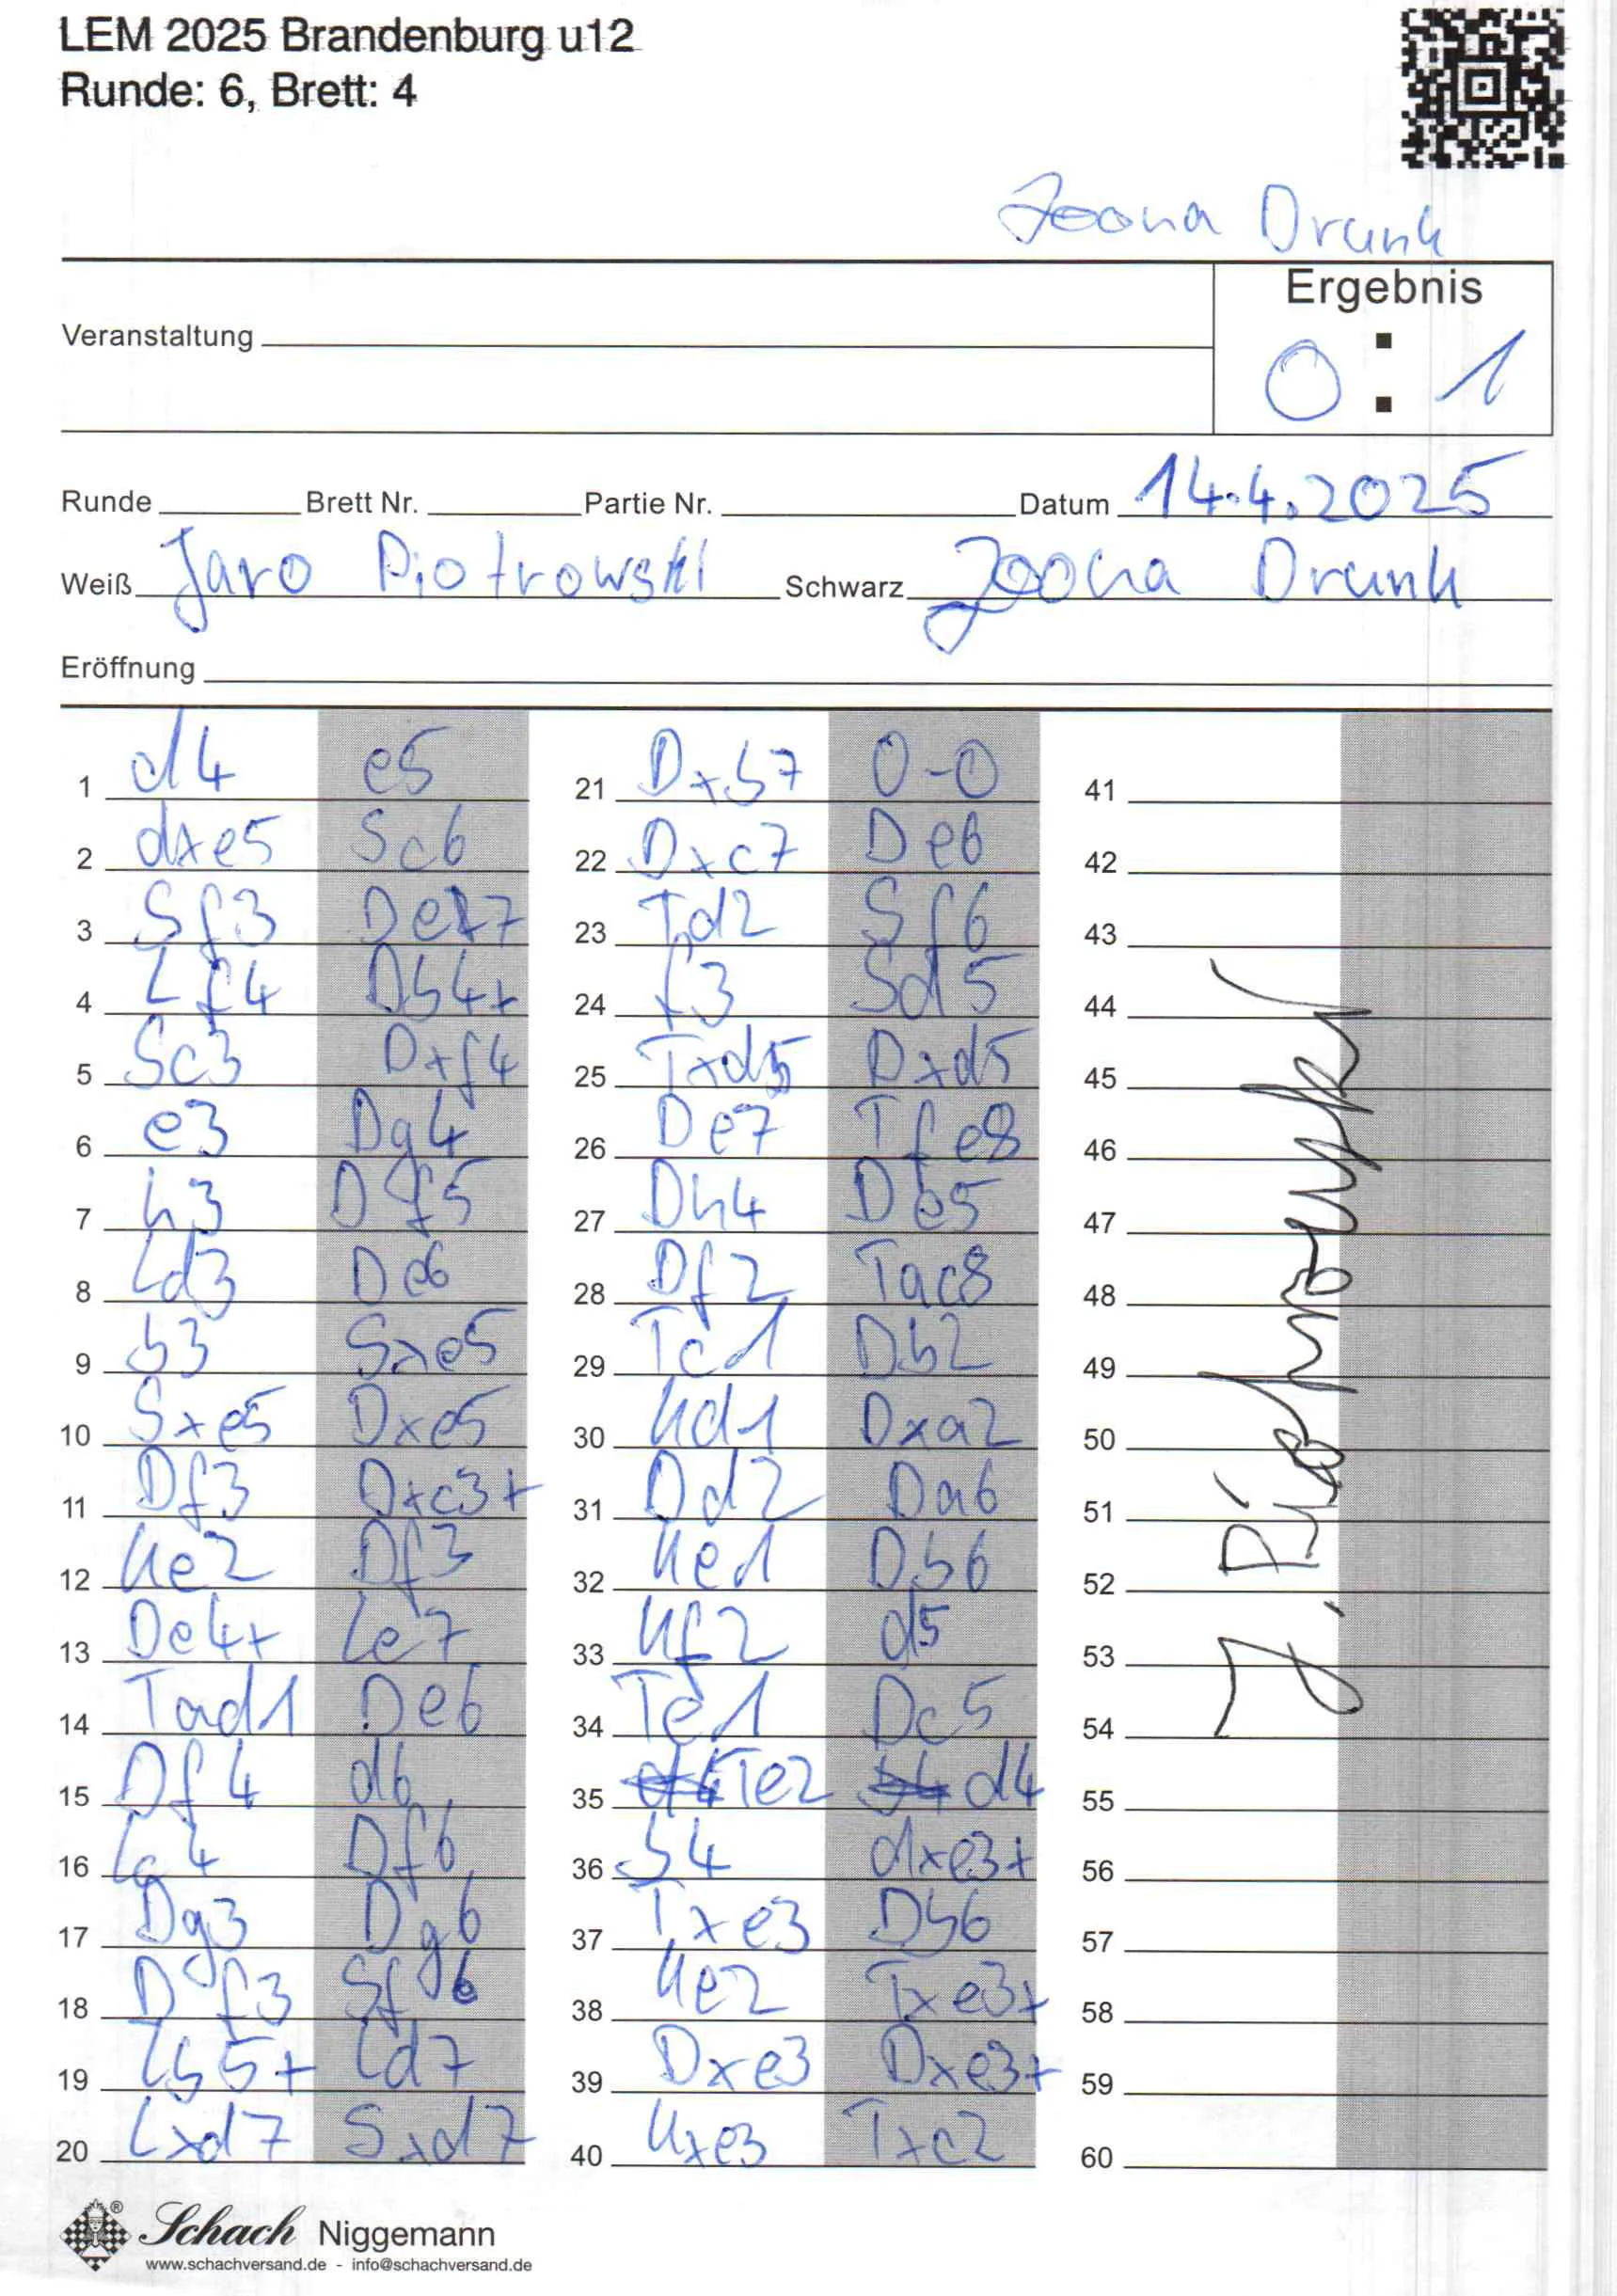 LEM 2025 Brandenburg u12
Runde: 6, Brett: 4
Joona Drunk
Ergebnis
Veranstaltung
0 : 1
Runde Brett Nr. Partie Nr. Datum 14.4.2025
Weiß Jaro Piotrowski Schwarz Joona Drunk
Eröffnung
1 d4 e5
2 dxe5 Sc6
3 Sf3 De7
4 Lf4 Db4+
5 Sc3 Dxf4
6 e3 Dg4
7 h3 Df5
8 Ld3 De6
9 b3 Sxe5
10 Sxe5 Dxe5
11 Df3 Dxc3+
12 Ke2 Df3
13 De4+ Le7
14 Tad1 De6
15 Df4 d6
16 Lc4 Df6
17 Dg3 Dg6
18 Df3 Sf6
19 Lb5+ Ld7
20 Lxd7 Sxd7
21 Dxb7 0-0
22 Dxc7 De6
23 Td2 Sf6
24 f3 Sd5
25 Txd5 Dxd5
26 De7 Tfe8
27 Dh4 De5
28 Df2 Tac8
29 Tc1 Db2
30 Kd1 Dxa2
31 Dd2 Da6
32 Ke1 Db6
33 Kf2 d5
34 Te1 Dc5
35 Te2 d4
36 b4 dxe3+
37 Txe3 Db6
38 Ke2 Txe3+
39 Dxe3 Dxe3+
40 Kxe3 Txc2
41
42
43
44
45
46
47
48
49
50
51
52
53
54
55
56
57
58
59
60
J. Piotrowski
Schach Niggemann
www.schachversand.de - info@schachversand.de